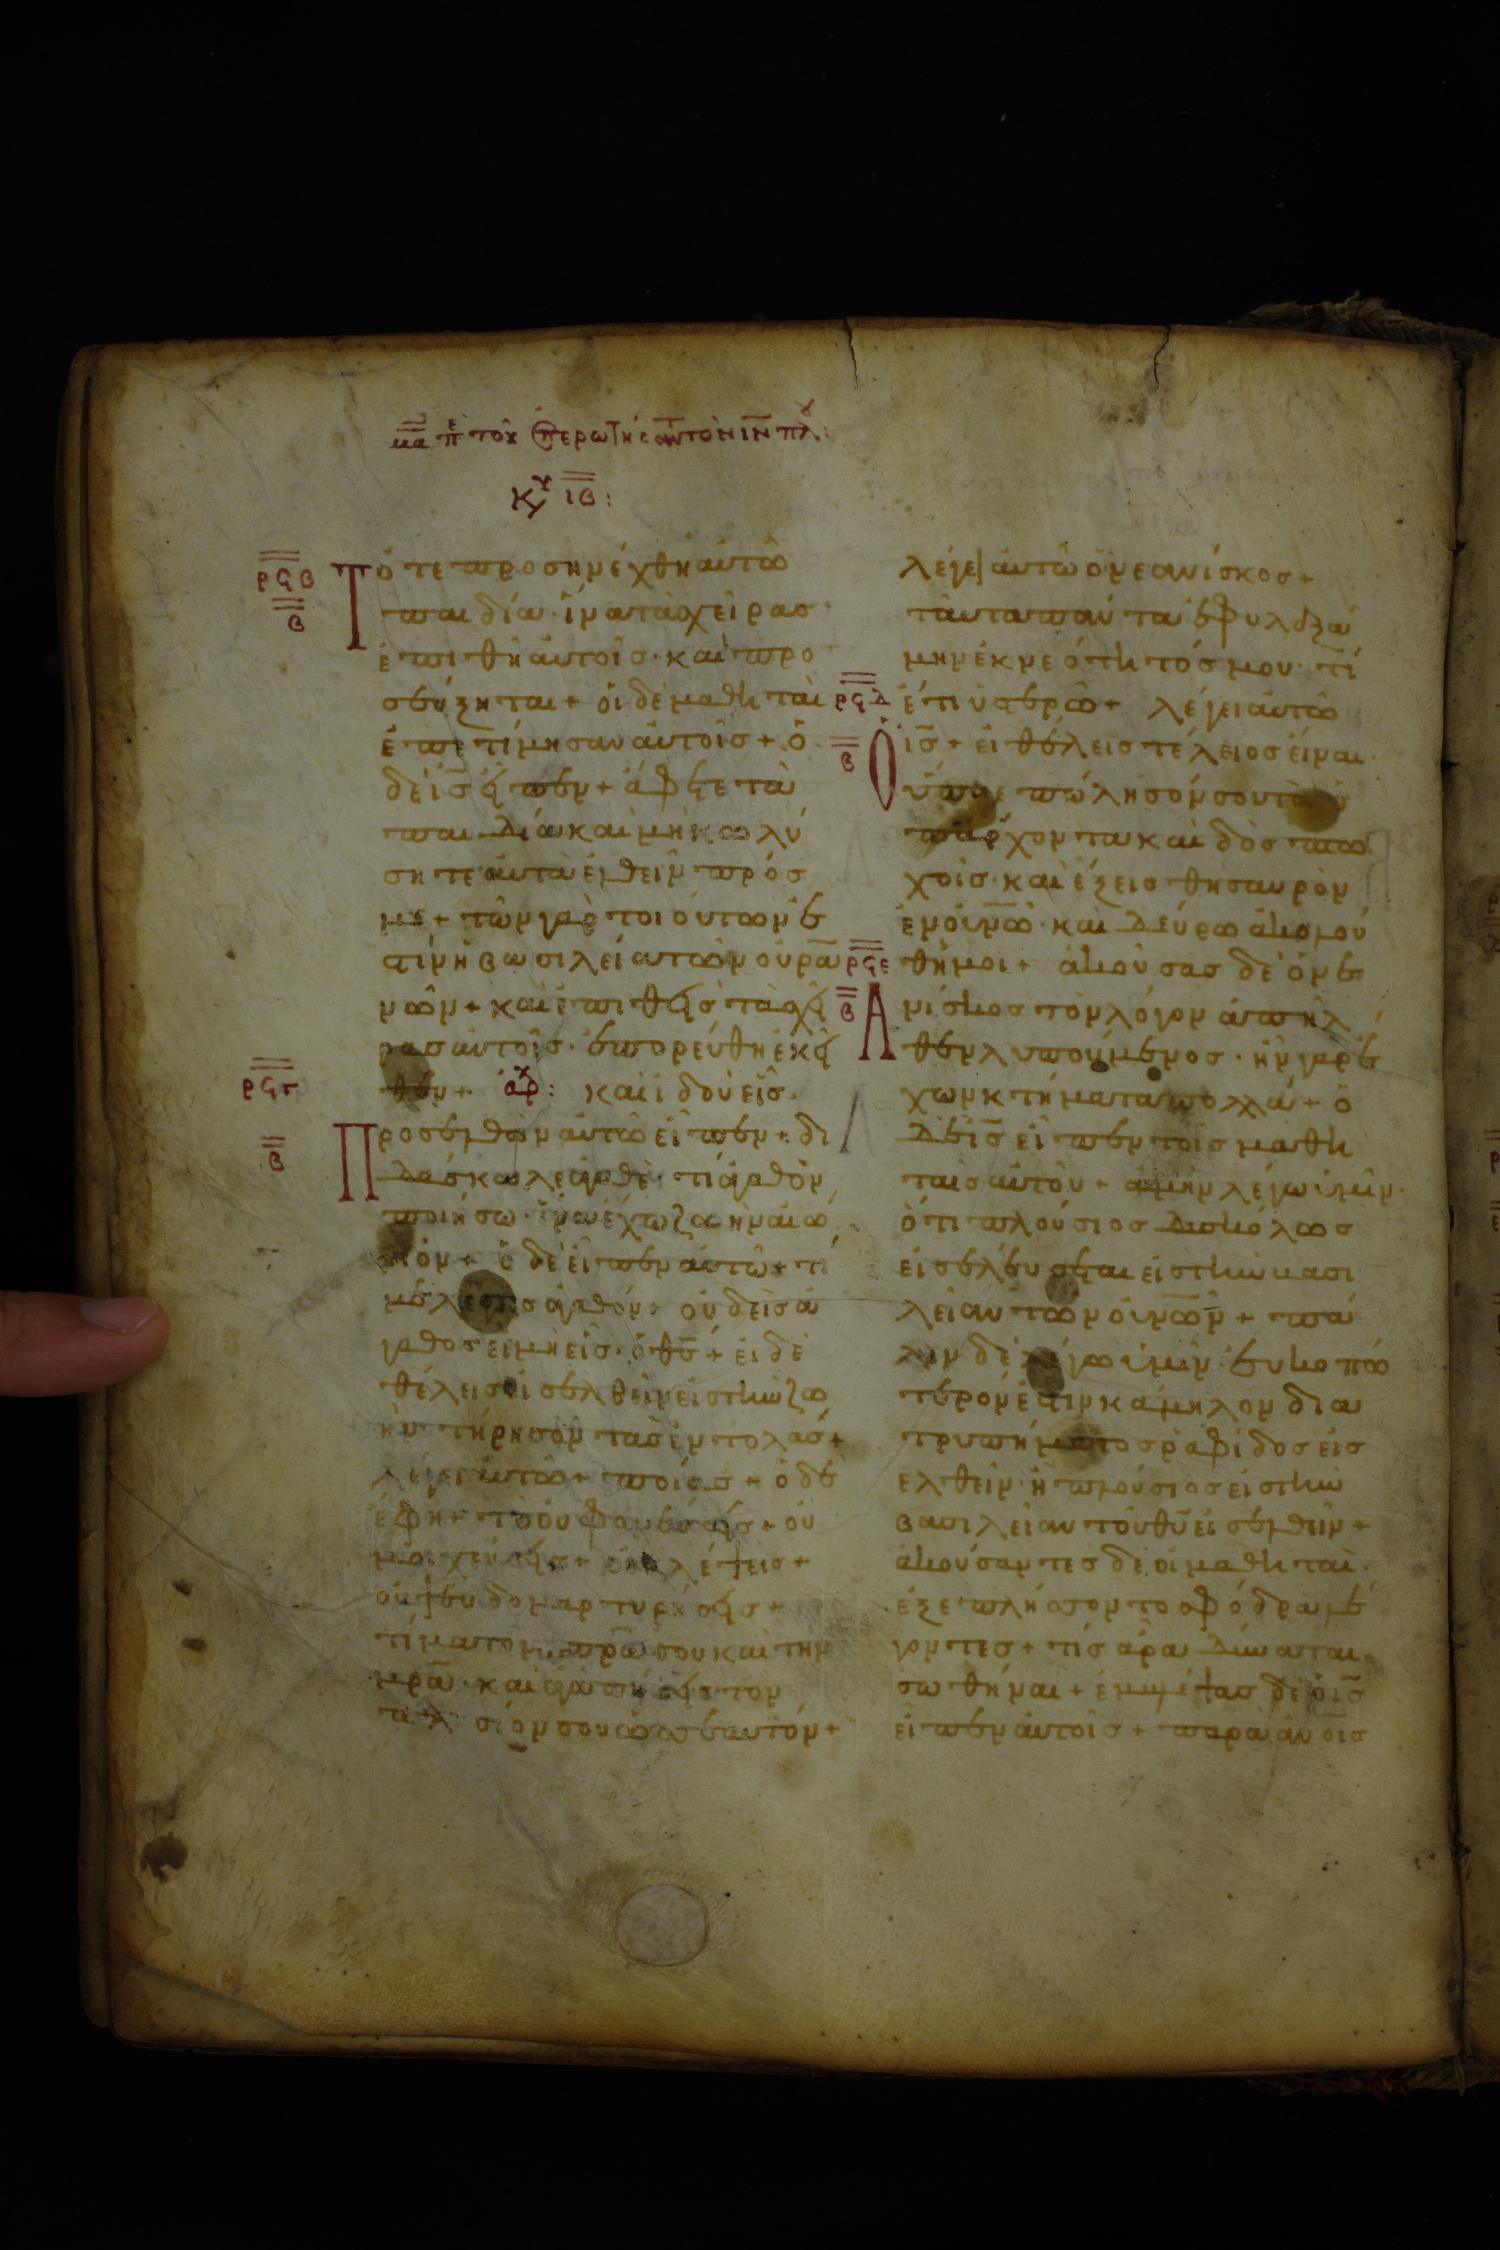 μα πε του επερωτησαντος τον ιν πλου:
κυ ιβ:
ρϟβ
β
Τότε προσηνέχθη αυτῶ
παιδία· ἵνα τὰς χεῖρας
ἐπιθῆ αυτοῖς· καὶ προ
σεύξηται + οἱ δὲ μαθηταὶ
ἐπετίμησαν ἀυτοῖς + ὁ
δε ις εἶπεν + ἄφετε τὰ
παιδία καὶ μὴ κωλύ
σητε ἀυτὰ ἐλθεῖν πρός
με + τῶν γὰρ τοιούτων ἐ
στὶν ἡ βασιλεία τῶν ουρα
νῶν + καὶ ἐπιθεὶς τὰς χεῖ
ρας ἀυτοῖς· ἐπορεύθη ἐκεῖ
θεν + αρχ: καὶ ἰδοὺ εἷς
ρϟγ
β
Προσελθὼν ἀυτῶ εἶπεν + δι
δάσκαλε ἀγαθὲ· τί ἀγαθὸν
ποιήσω· ἵνα ἔχω ζωὴν αἰώ
νιον + ὁ δὲ εἶπεν ἀυτῶ + τί
με λέγεις ἀγαθόν + ουδεὶς ἀ
γαθος ει μὴ εἷς· ὁ θς + εἰ δὲ
θέλεις εἰσελθεῖν εἰς τὴν ζω
ήν τήρησον τὰς ἐντολάς +
λέγει ἀυτῶ + ποίας + ὁ δὲ
ἔφη + τὸ ου φονεύσεις + ου
μοιχεύσεις + ου κλέψεις +
ου ψευδομαρτυρήσεις +
τίμα τον πρα σου καὶ τὴν
μρα· καὶ ἀγαπήσεις τον
πλησίον σου ὡς σεαυτόν +
λέγει ἀυτῶ ὁ νεανίσκος +
ταῦτα πάντα ἐφυλαξά
μην ἐκ νεότητός μου· τί
ρϟδ
ἔτι ὑστερῶ + λέγει ἀυτῶ
β
Ὁ ις + εἰ θέλεις τέλειος εἶναι·
ὕπαγε πώλησόν σου τὰ ὑ
πάρχοντα καὶ δὸς πτω
χοῖς· καὶ ἕξεις θησαυρὸν
ἐν ουνῶ· καὶ δεῦρο ἀκολού
ρϟε
θει μοι + ἀκούσας δὲ ὁ νε
β
Ανίσκος τὸν λόγον ἀπῆλ
θεν λυπούμενος· ἦν γὰρ ἔ
χων κτήματα πολλά + ὁ
δὲ ις εἶπεν τοῖς μαθη
ταῖς ἀυτοῦ + ἀμὴν λέγω ὑμῖν·
ὅτι πλούσιος δυσκόλως
εἰσελεύσεται εἰς τὴν βασι
λείαν τῶν ουνῶν + πά
λιν δὲ λέγω ὑμῖν· ἐυκοπώ
τερον ἐστιν κάμηλον δια
τρυπήματος ραφίδος εἰσ
ελθεῖν· ἢ πλούσιος εἰς τὴν
βασιλείαν τοῦ θυ εἰσελθεῖν +
ἀκούσαντες δὲ οἱ μαθηταὶ·
ἐξεπλήσσοντο σφόδρα λέ
γοντες + τίς ἄρα δύναται
σωθῆναι + ἐμβλέψας δὲ ὁ ις
εἶπεν ἀυτοῖς + παρὰ ἀνοις